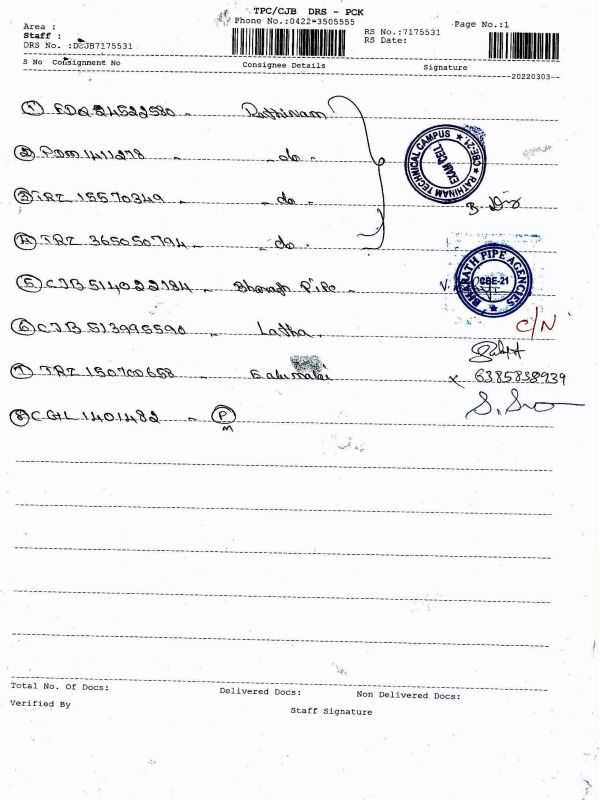 TPC/CJB DRS - PCK
Area : Phone No.:0422-3505555 Page No.:1
Staff : RS No.:7175531
DRS No. :DCJB7175531 RS Date:
S No Consignment No Consignee Details Signature
20220303
① EDQ 24522580 - Rathinam
② PDM 1411278 - - do -
RATHINAM TECHNICAL CAMPUS ★ CBE-21 ★ EXAM CELL
③ TRZ 15570349 - - do -
④ TRZ 365050794 - - do -
⑤ CJB 514022184 - Bharath Pipe
BHARATH PIPE AGENCIES CBE-21 ★
C/N
⑥ CJB 513995590 - Latha
⑦ TRZ 150700658 -
6385838939
⑧ CGL 1401482 - Ⓟ
M
Total No. Of Docs: Delivered Docs: Non Delivered Docs:
Verified By Staff Signature